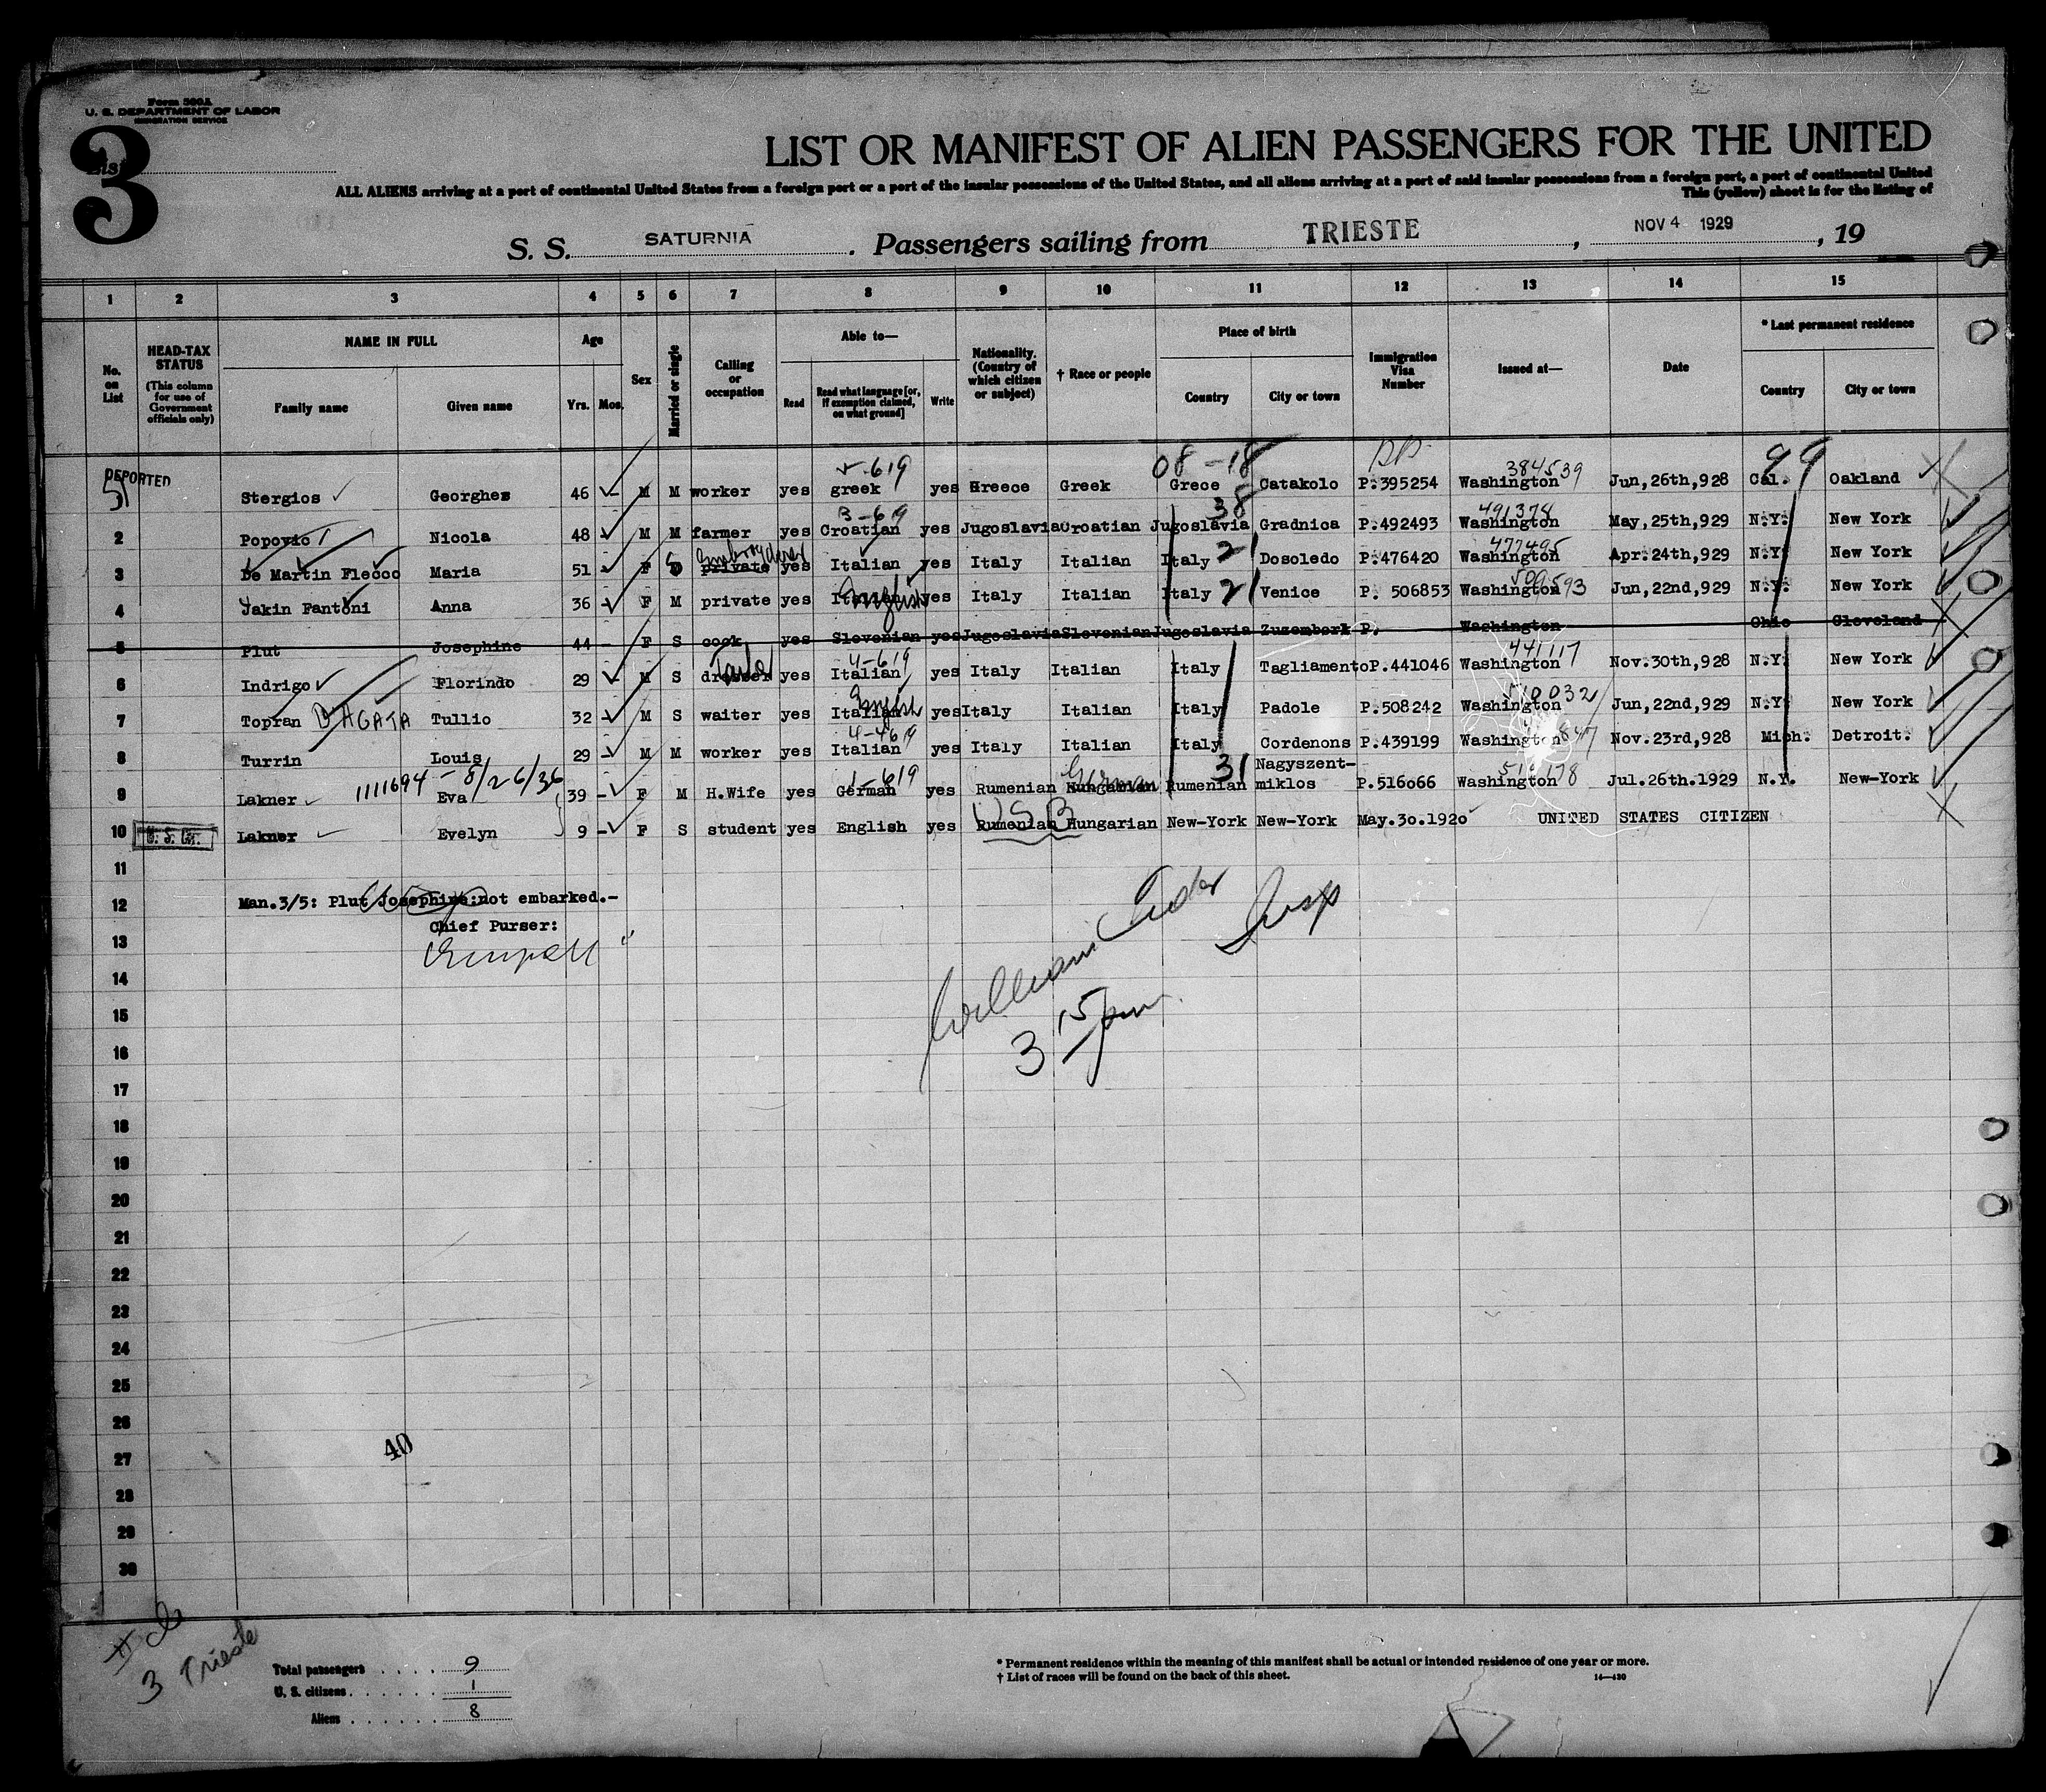 Form 500A
U. S. DEPARTMENT OF LABOR
IMMIGRATION SERVICE
List 3
LIST OR MANIFEST OF ALIEN PASSENGERS FOR THE UNITED
ALL ALIENS arriving at a port of continental United States from a foreign port or a port of the insular possessions of the United States, and all aliens arriving at a port of said insular possessions from a foreign port, a port of continental United
This (yellow) sheet is for the listing of
S. S. SATURNIA. Passengers sailing from TRIESTE, NOV 4 1929, 19
1 2 3 4 5 6 7 8 9 10 11 12 13 14 15
No. on List
HEAD-TAX STATUS (This column for use of Government officials only)
NAME IN FULL
Family name Given name
Age
Yrs. Mos.
Sex
Married or single
Calling or occupation
Able to—
Read Read what language [or, if exemption claimed, on what ground] Write
Nationality. (Country of which citizen or subject)
† Race or people
Place of birth
Country City or town
Immigration Visa Number
Issued at—
Date
* Last permanent residence
Country City or town
08-18 99
619 384539
DEPORTED Stergios Georghes 46 M M worker yes greek yes Greece Greek Grece Catakolo P.395254 Washington Jun,26th,928 Cal. Oakland
3-619 38 491378
2 Popovic Nicola 48 M M farmer yes Croatian yes Jugoslavia Croatian Jugoslavia Gradnica P.492493 Washington May,25th,929 N.Y. New York
477495
3 De Martin Flecco Maria 51 F S private yes Italian yes Italy Italian Italy 21 Dosoledo P.476420 Washington Apr.24th,929 N.Y. New York
4 Jakin Fantoni Anna 36 F M private yes Italian English yes Italy Italian Italy 21 Venice P. 506853 Washington 593 Jun,22nd,929 N.Y. New York
5 Plut Josephine 44 F S cook yes Slovenian yes Jugoslavia Slovenian Jugoslavia Zuzemberk P. Washington Ohio Cleveland
4-619 441117
6 Indrigo Florindo 29 M S yes Italian yes Italy Italian Italy Tagliamento P.441046 Washington Nov.30th,928 N.Y. New York
English 510032
7 Topran D'AGATA Tullio 32 M S waiter yes Italian yes Italy Italian Italy Padole P.508242 Washington Jun,22nd,929 N.Y. New York
8 Turrin Louis 29 M M worker yes Italian yes Italy Italian Italy Cordenons P.439199 Washington 847 Nov.23rd,928 Mich. Detroit.
1111694 - 8/26/36 1-619 German 31
9 Lakner Eva 39 F M H.Wife yes German yes Rumenian Hungarian Rumenian Nagyszent-miklos P.516066 Washington Jul.26th.1929 N.Y. New-York
10 U. S. C. Lakner Evelyn 9 F S student yes English yes USB Rumenian Hungarian New-York New-York May.30.1920 UNITED STATES CITIZEN
11
12 Man.3/5: Plut Josephine:not embarked.-
Chief Purser:
13
14
William Insp
15
3 15 pm
16
17
18
19
20
21
22
23
24
25
26
27 40
28
29
30
3 Trieste
Total passengers . . . . 9
U. S. citizens . . . . . . 1
Aliens . . . . . . 8
* Permanent residence within the meaning of this manifest shall be actual or intended residence of one year or more.
† List of races will be found on the back of this sheet. 14—430